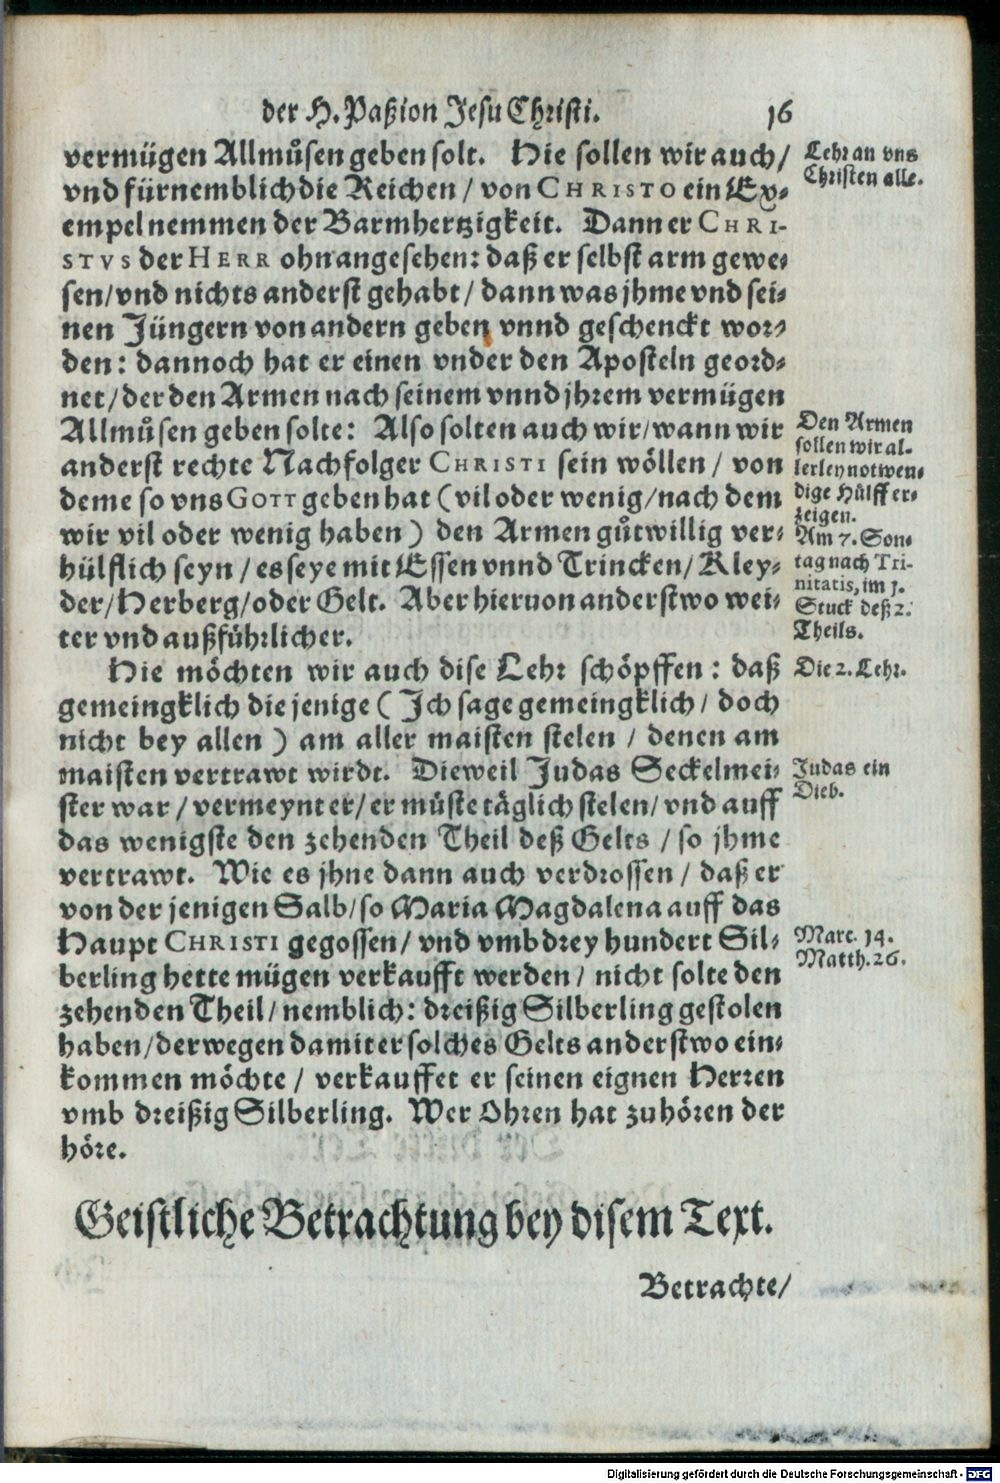 der H. Paßion Jesu Christi. 16
vermügen Allmůsen geben solt. Hie sollen wir auch/
vnd fürnemblich die Reichen / von CHRISTO ein Ex⸗
empel nemmen der Barmhertzigkeit. Dann er CHRI-
STVS der HERR ohn angesehen: daß er selbst arm gewe⸗
sen/vnd nichts anderst gehabt / dann was jhme vnd sei⸗
nen Jüngern von andern geben vnnd geschenckt wor⸗
den: dannoch hat er einen vnder den Aposteln geord⸗
net/der den Armen nach seinem vnnd jhrem vermügen
Allmůsen geben solte: Also solten auch wir/wann wir
anderst rechte Nachfolger CHRISTI sein wöllen / von
deme so vns GOTT geben hat (vil oder wenig/nach dem
wir vil oder wenig haben) den Armen gůtwillig ver⸗
hülfflich seyn / es seye mit Essen vnnd Trincken/ Kley⸗
der/Herberg/oder Gelt. Aber hieruon anderstwo wei⸗
ter vnd außführlicher.
Hie möchten wir auch dise Lehr schöpffen: daß
gemeingklich die jenige (Ich sage gemeingklich/ doch
nicht bey allen) am aller maisten stelen / denen am
maisten vertrawt wirdt. Dieweil Judas Seckelmei⸗
ster war / vermeynt er/er můste täglich stelen/ vnd auff
das wenigste den zehenden Theil deß Gelts / so jhme
vertrawt. Wie es jhne dann auch verdrossen / daß er
von der jenigen Salb/so Maria Magdalena auff das
Haupt CHRISTI gegossen/ vnd vmb drey hundert Sil⸗
berling hette mügen verkaufft werden / nicht solte den
zehenden Theil/ nemblich: dreißig Silberling gestolen
haben/derwegen damit er solches Gelts anderstwo ein⸗
kommen möchte / verkauffet er seinen eignen Herren
vmb dreißig Silberling. Wer Ohren hat zuhören der
höre.
Geistliche Betrachtung bey disem Text.
Betrachte/
Lehr an vns
Christen alle.
Den Armen
sollen wir al⸗
lerley notwen⸗
dige Hülff er⸗
zeigen.
Am 7. Son⸗
tag nach Tri-
nitatis, im 1.
Stuck deß 2.
Theils.
Die 2. Lehr.
Judas ein
Dieb.
Marc. 14.
Matth. 26.
Digitalisierung gefördert durch die Deutsche Forschungsgemeinschaft - DFG